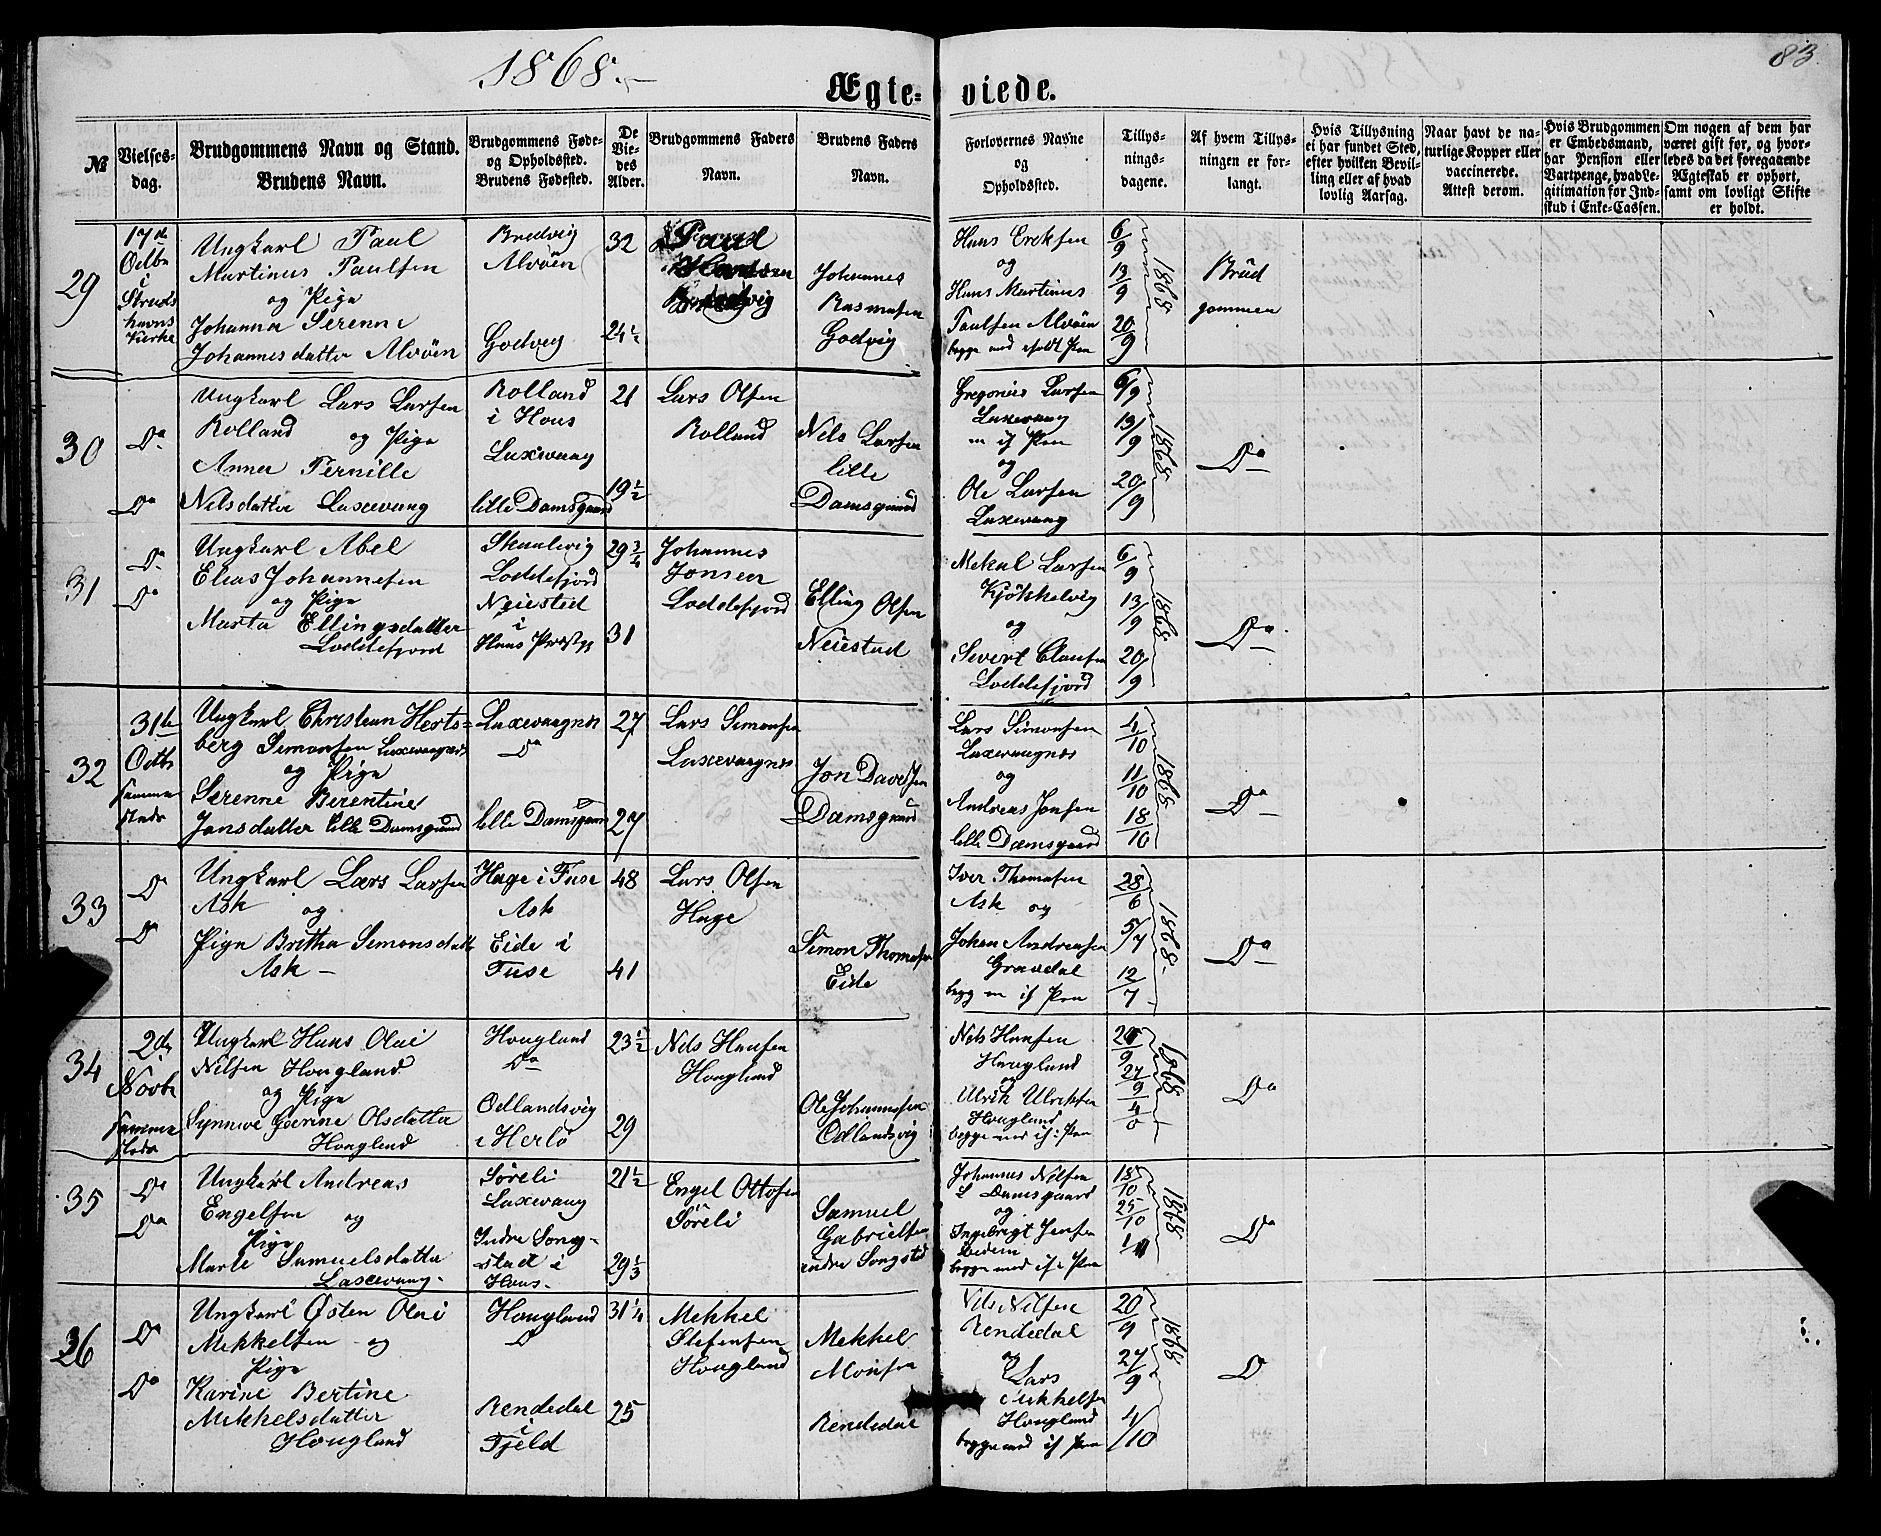 1868.
83.
Ægteviede.
№
Vielsesdag.
Brudgommens Navn og Stand.
Brudens Navn.
Brudgommens Føde-
og Opholdssted.
Brudens Fødested.
De
Viedes
Alder.
Brudgommens Faders
Navn.
Brudens Faders
Navn.
Forlovernes Navne
og
Opholdssted.
Tillysningsdagene.
Af hvem Tillysningen er forlangt.
Hvis Tillysning
ei har fundet Sted,
efter hvilken Bevilling eller af hvad
lovlig Aarsag.
Naar havt de naturlige Kopper eller
vaccinerede.
Attest derom.
Hvis Brudgommen
er Embedsmand,
har Pension eller
Vartpenge, hvad Legitimation for Indskud i Enke-Cassen.
Om nogen af dem har
været gift før, og hvorledes da det foregaaende
Ægteskab er ophørt,
samt om lovligt Skifte
er holdt.
29
17de
Octbr
i
kirke
Ungkarl Paul
Martinus Paulsen
og Pige
Johanna Serenne
Johannesdatter Alvøen
Bredvig
Alvøen
Godvig
32
24½
Paul
Johannes
Rasmusen
Godvig
Hans Ereksen
og
Hans Martinus
Paulsen Alvøen
6/9
13/9
20/9
1868
Brud
gommen
30
Do
Do
Ungkarl Lars Larsen
Rolland og Pige
Anna Pernille
Nilsdatter Laxevaag
Rolland
i Hous
Laxevaag
lille Damsgaard
21
19½
Lars Olsen
Rolland
Nils Larsen
lille
Damsgaard
Gregorius Larsen
Laxevaag
og
Ole Larsen
Laxevaag
6/9
13/9
20/9
1868
Do
31
Do
Do
Ungkarl Abel
Elias Johannesen
og Pige
Marta Ellingsdatter
Loddefjord
Skaalevig
Loddefjord
Neiestad
i
29¾
31
Johannes
Jonsen
Loddefjord
Elling Olsen
Neiestad
Mekal Larsen
Kjøkkelvig
og
Sivert Clausen
Loddefjord
6/9
13/9
20/9
1868
Do
32
31te
Octbr
samme
Sted
Ungkarl Christian Hertsberg Simonsen Laxevaagnæs
og Pige
Serenne Berentine
Jonsdatter lille Damsgaard
Laxevaagnæs
Do
lille Damsgaard
27
27
Lars Simonsen
Laxevaagnæs
Jon Davidsen
Damsgaard
Lars Simonsen
Laxevaagnæs
og
Andreas Jonsen
lille Damsgaard
4/10
11/10
18/10
1868
Do
33
Do
Do
Ungkarl Lars Larsen
Ask og
Pige Britha Simonsdatter
Ask
Hage i Fuse
Ask
Eide i
Fuse
48
41
Lars Olsen
Hage
Simon Thomasen
Eide
Iver Thomasen
Ask og
Johan Andreasen
Gravdal
28/6
5/7
12/7
1868
Do
34
2den
Novbr
samme
Sted
Ungkarl Hans Olai
Nilsen Hougland
og Pige
Synneve Geerine Olsdatter
Hougland
Hougland
Do
Odlandsvig
i Herlø
23½
29
Nils Hansen
Hougland
Ole Johannesen
Odlandsvig
Nils Hansen
Hougland
og
Ulrik Ulriksen
Hougland
20/9
27/9
1868
Do
35
Do
Do
Ungkarl Andreas
Engelsen og
Pige
Marte Samuelsdatter
Laxevaag
Søreli
Laxevaag
Indre Songstad i
Haus
21½
29⅓
Engel Ottosen
Søreli
Samuel
Gabrielsen
indre Songstad
Johannes Nilsen
L Damsgaard
og
Ingebrigt Jensen
18/10
25/10
1/11
1868
Do
36
Do
Do
Ungkarl Østen Olai
Mekkelsen og
Pige
Karine Bertine
Mekkelsdatter
Hougland
Hougland
Do
Rendedal
i
Fjeld
31¼
25
Mekkel
Stefensen
Hougland
Mekkel
Monsen
Rendedal
Nils Nilsen
Rendedal
og
Lars
Mekkelsen
Hougland
20/9
27/9
4/10
1868
Do